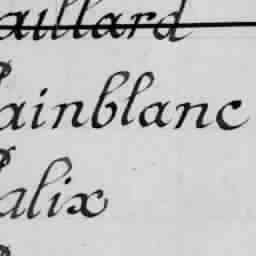 aillard
ainblanc
alix